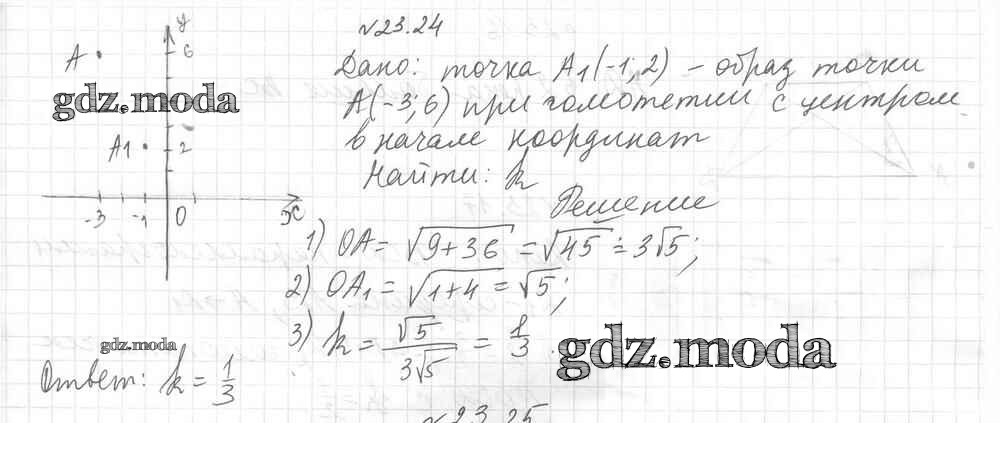 №23.24
Дано: точка A1(-1; 2) – образ точки
A(-3; 6) при гомотетии с центром
в начале координат
Найти: k
Решение
1) OA = √9+36 = √45 = 3√5;
2) OA1 = √1+4 = √5;
3) k = √5/3√5 = 1/3.
Ответ: k = 1/3
y
A
6
A1
2
-3 -1 0 x
gdz.moda
gdz.moda
gdz.moda
№23.25